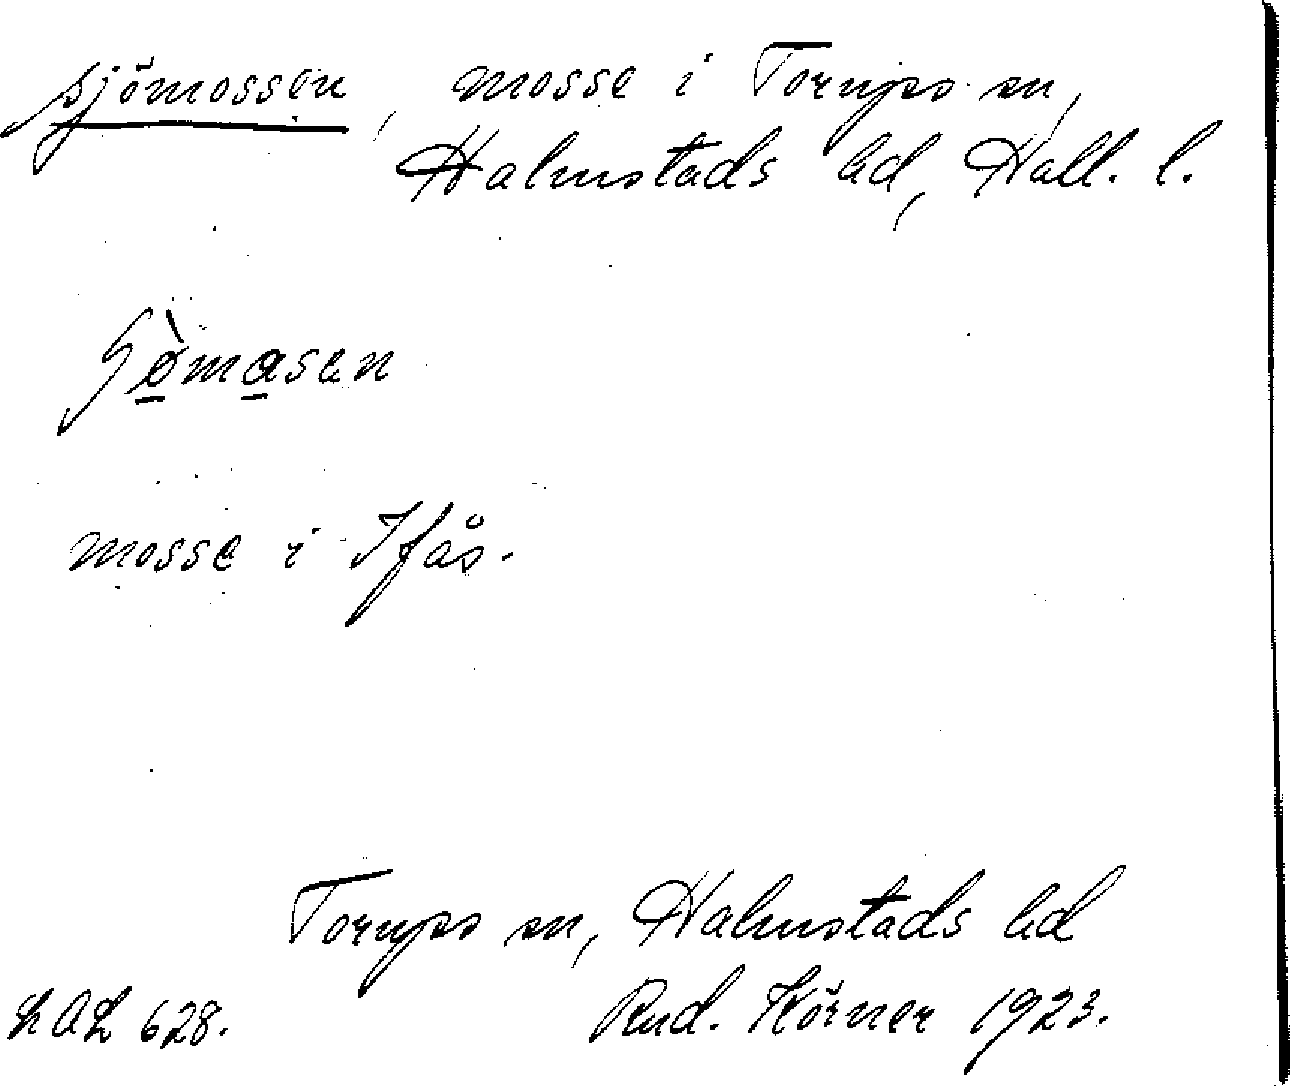 sjömossen, mosse i Torups sn,
Halmstads hd, Hall. l.
mosse i Ifås.
Torups sn, Halmstads hd
LAL 628. Rud. Körner 1923.